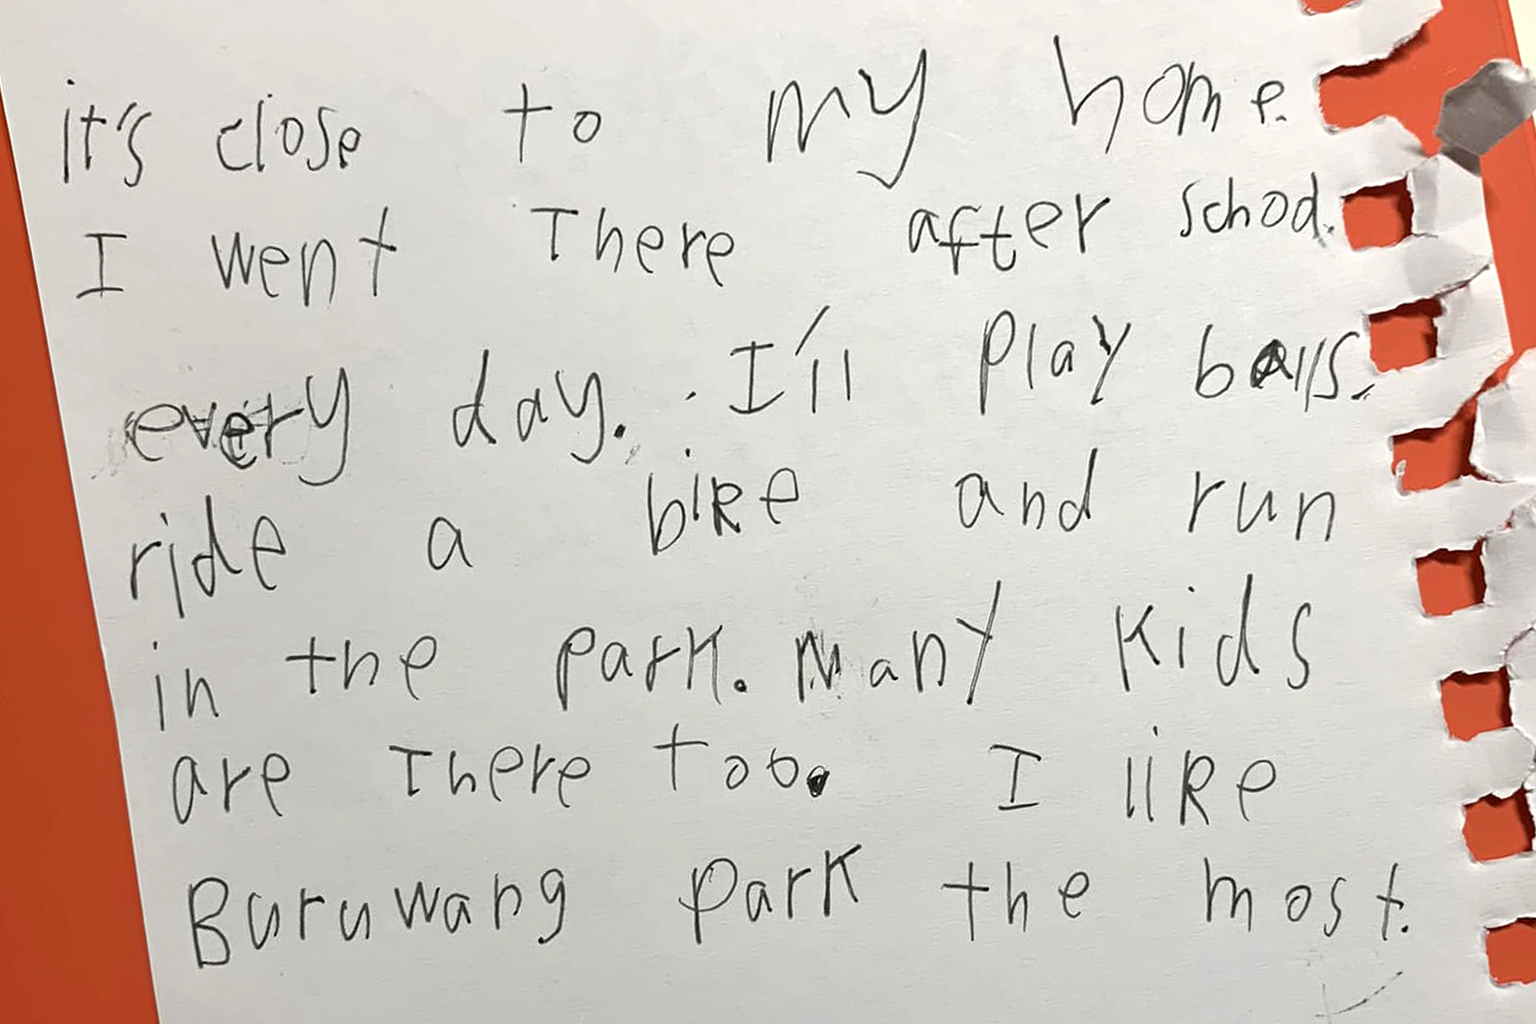 it's close to my home.
I went There after school.
every day. I'll play balls.
ride a bike and run
in the park. Many kids
are There too. I like
Buruwang park the most.